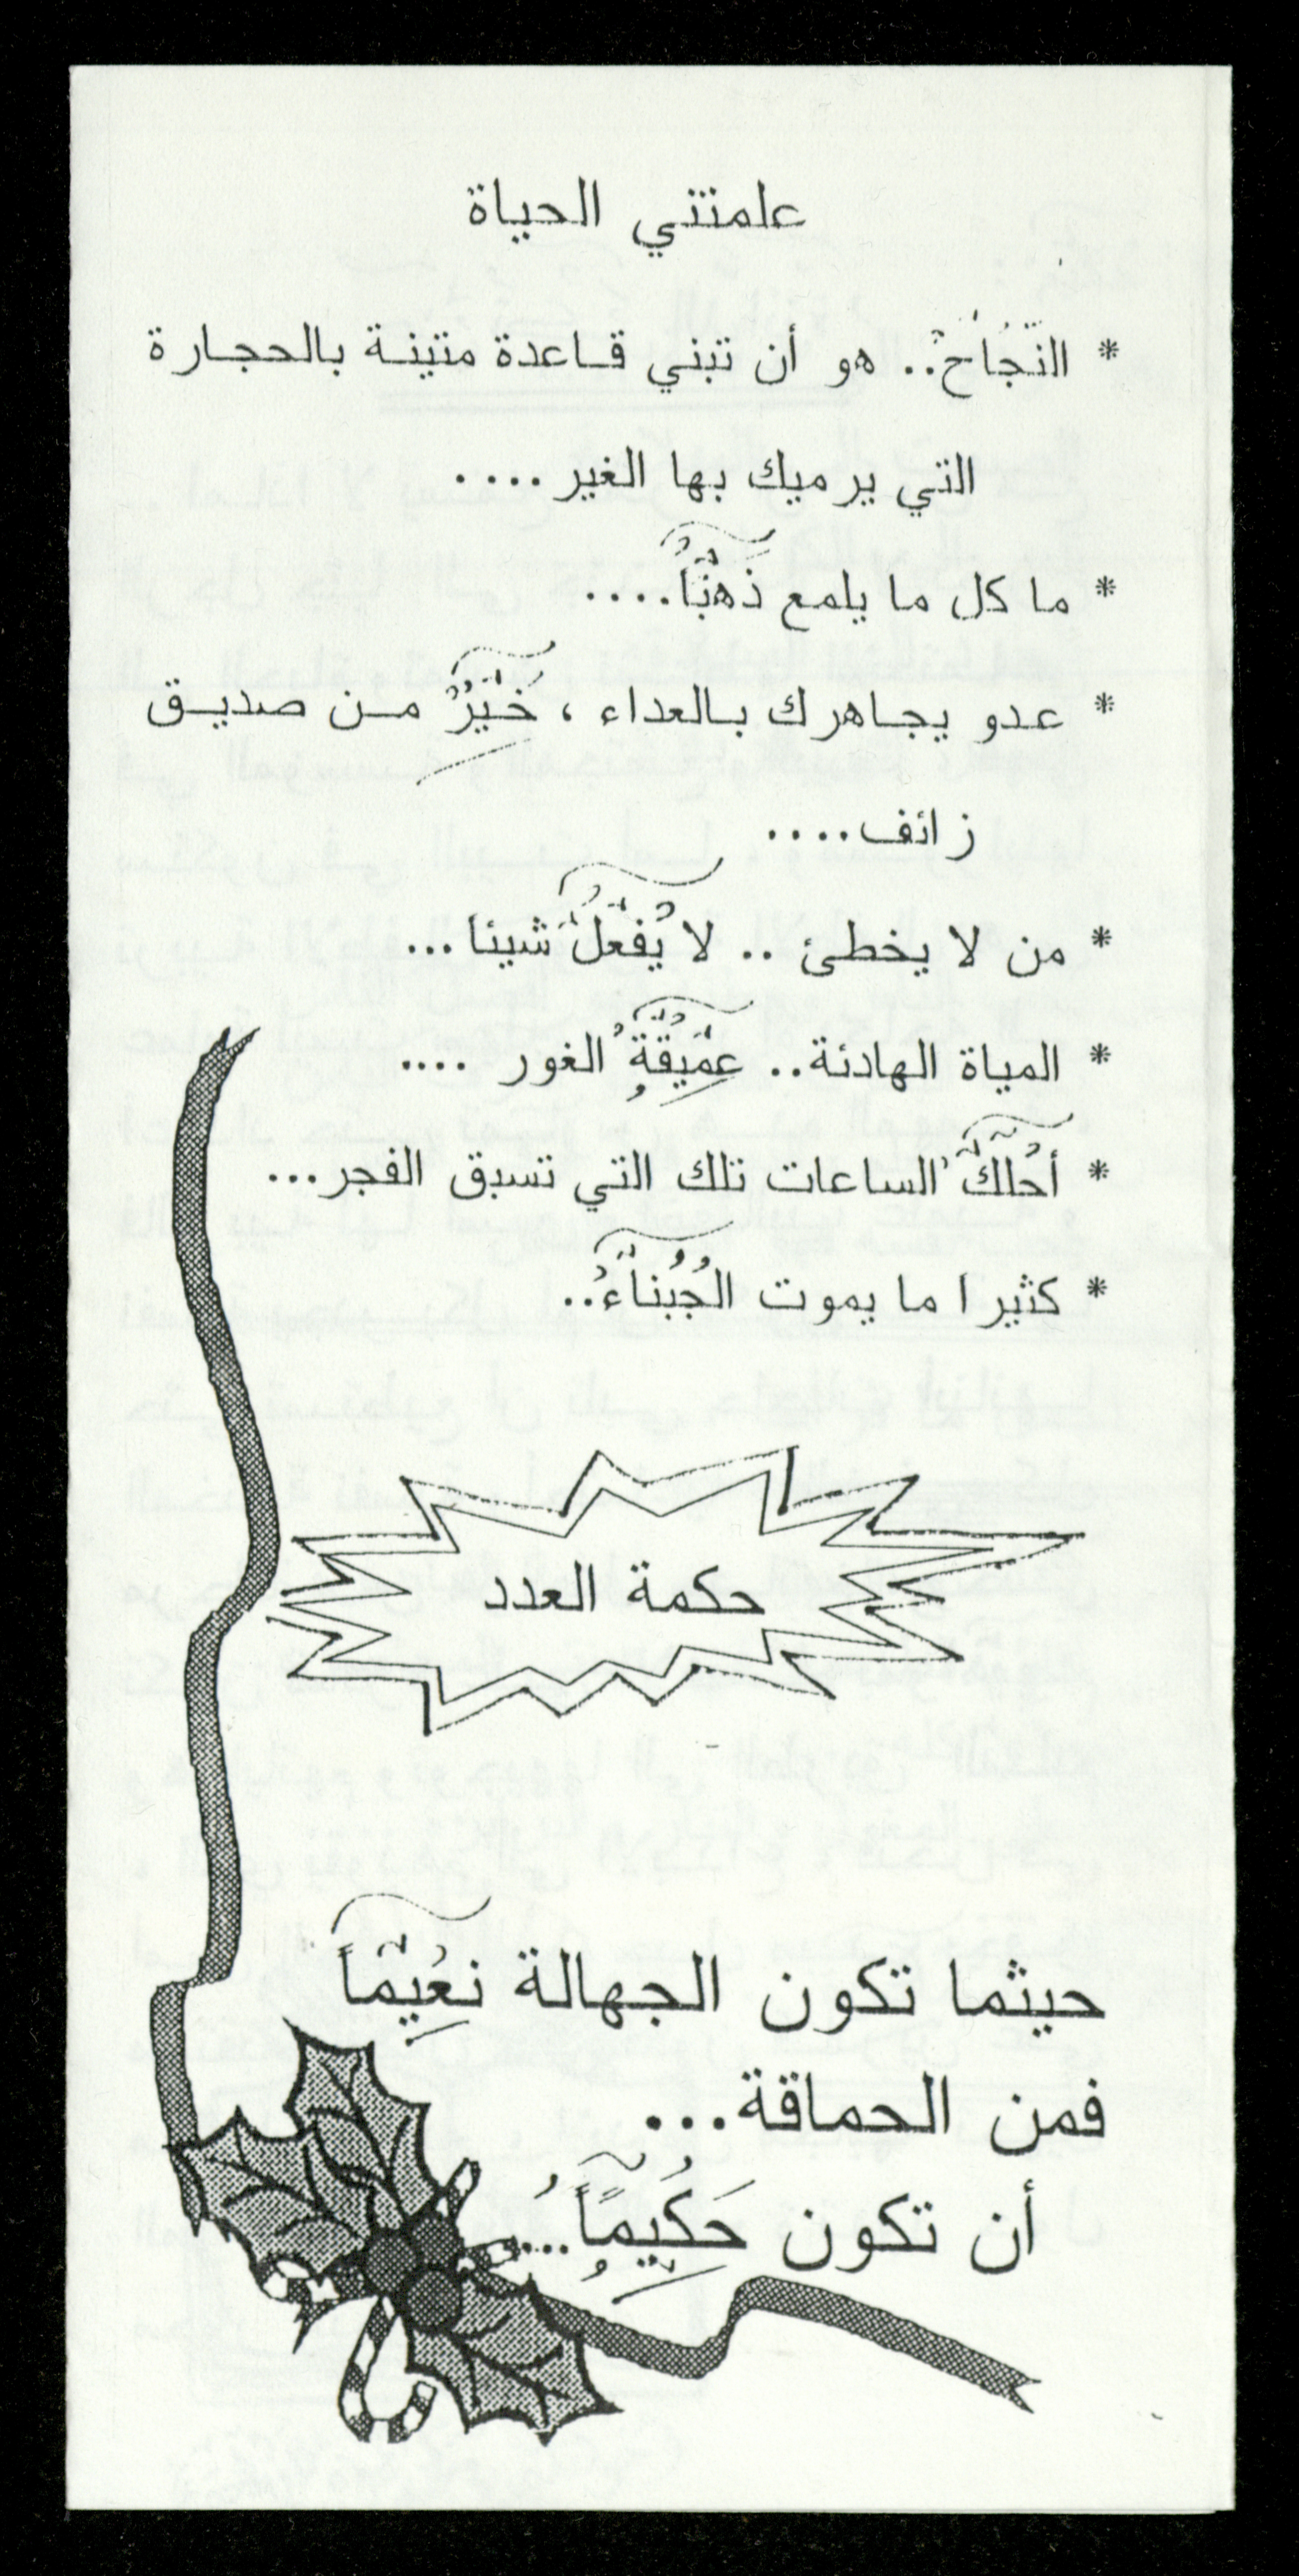 علمتني الحياة
* النّجاح.. هو أن تبني قاعدة متينة بالحجارة
التي يرميك بها الغير ....
* ما كل ما يلمع ذَهَبَاً....
* عدو يجاهرك بالعداء ، خَيْرٌ من صديق
زائف....
* من لا يخطئ .. لا يَفْعَلُ شيئا ...
* المياة الهادئة.. عَمِيْقَةٌ الغور ....
* أحْلَكُ الساعات تلك التي تسبق الفجر...
* كثيرا ما يموت الجُبْناءُ..
حكمة العدد
حيثما تكون الجهالة نعِيْماً
فمن الحماقة...
أن تكون حَكِيْمَاً...